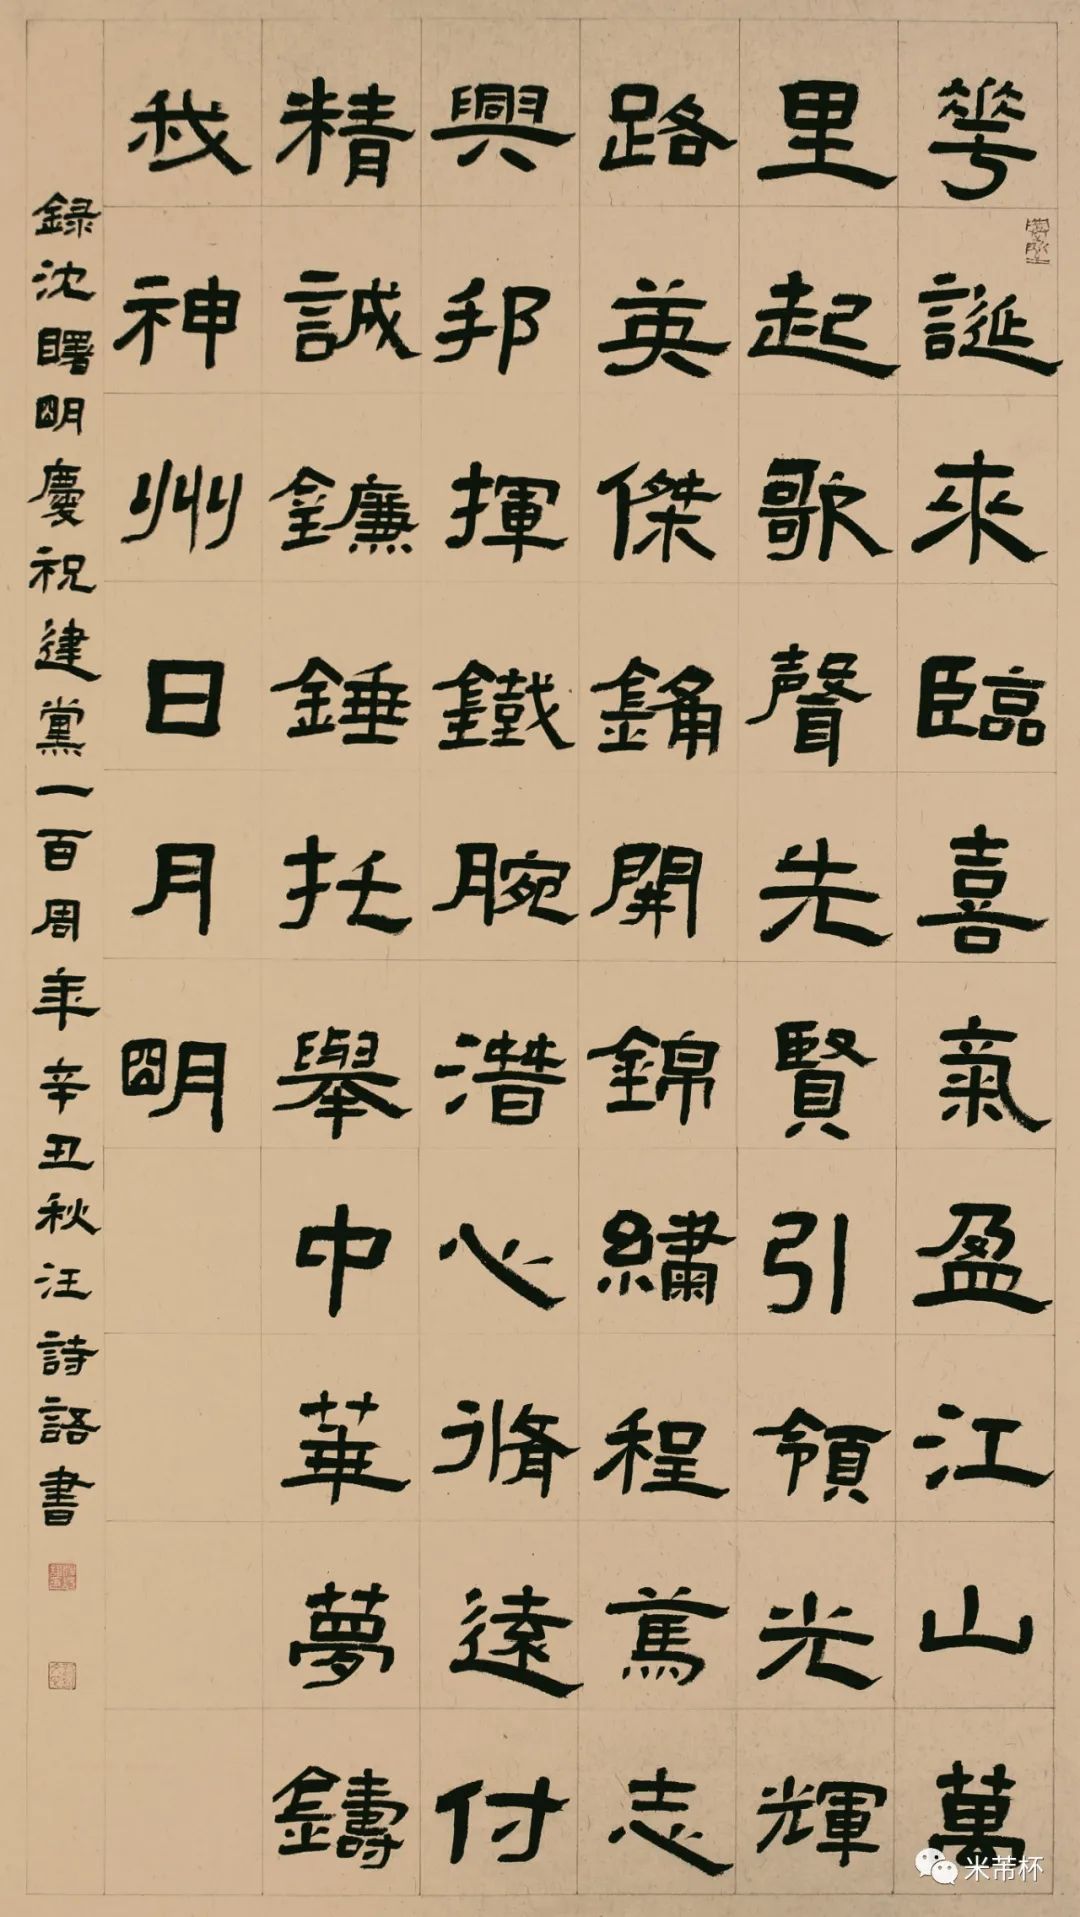 芲誕來臨喜氣盈江山萬
里起歌聲先賢引領光輝
路英傑銿開錦繡程篤志
興邦揮鐵腕潛心脩遠付
精誠鐮錘托舉中華夢鑄
我神州日月明
錄沈曙明慶祝建黨一百周年辛丑秋汪詩語書
米芾杯